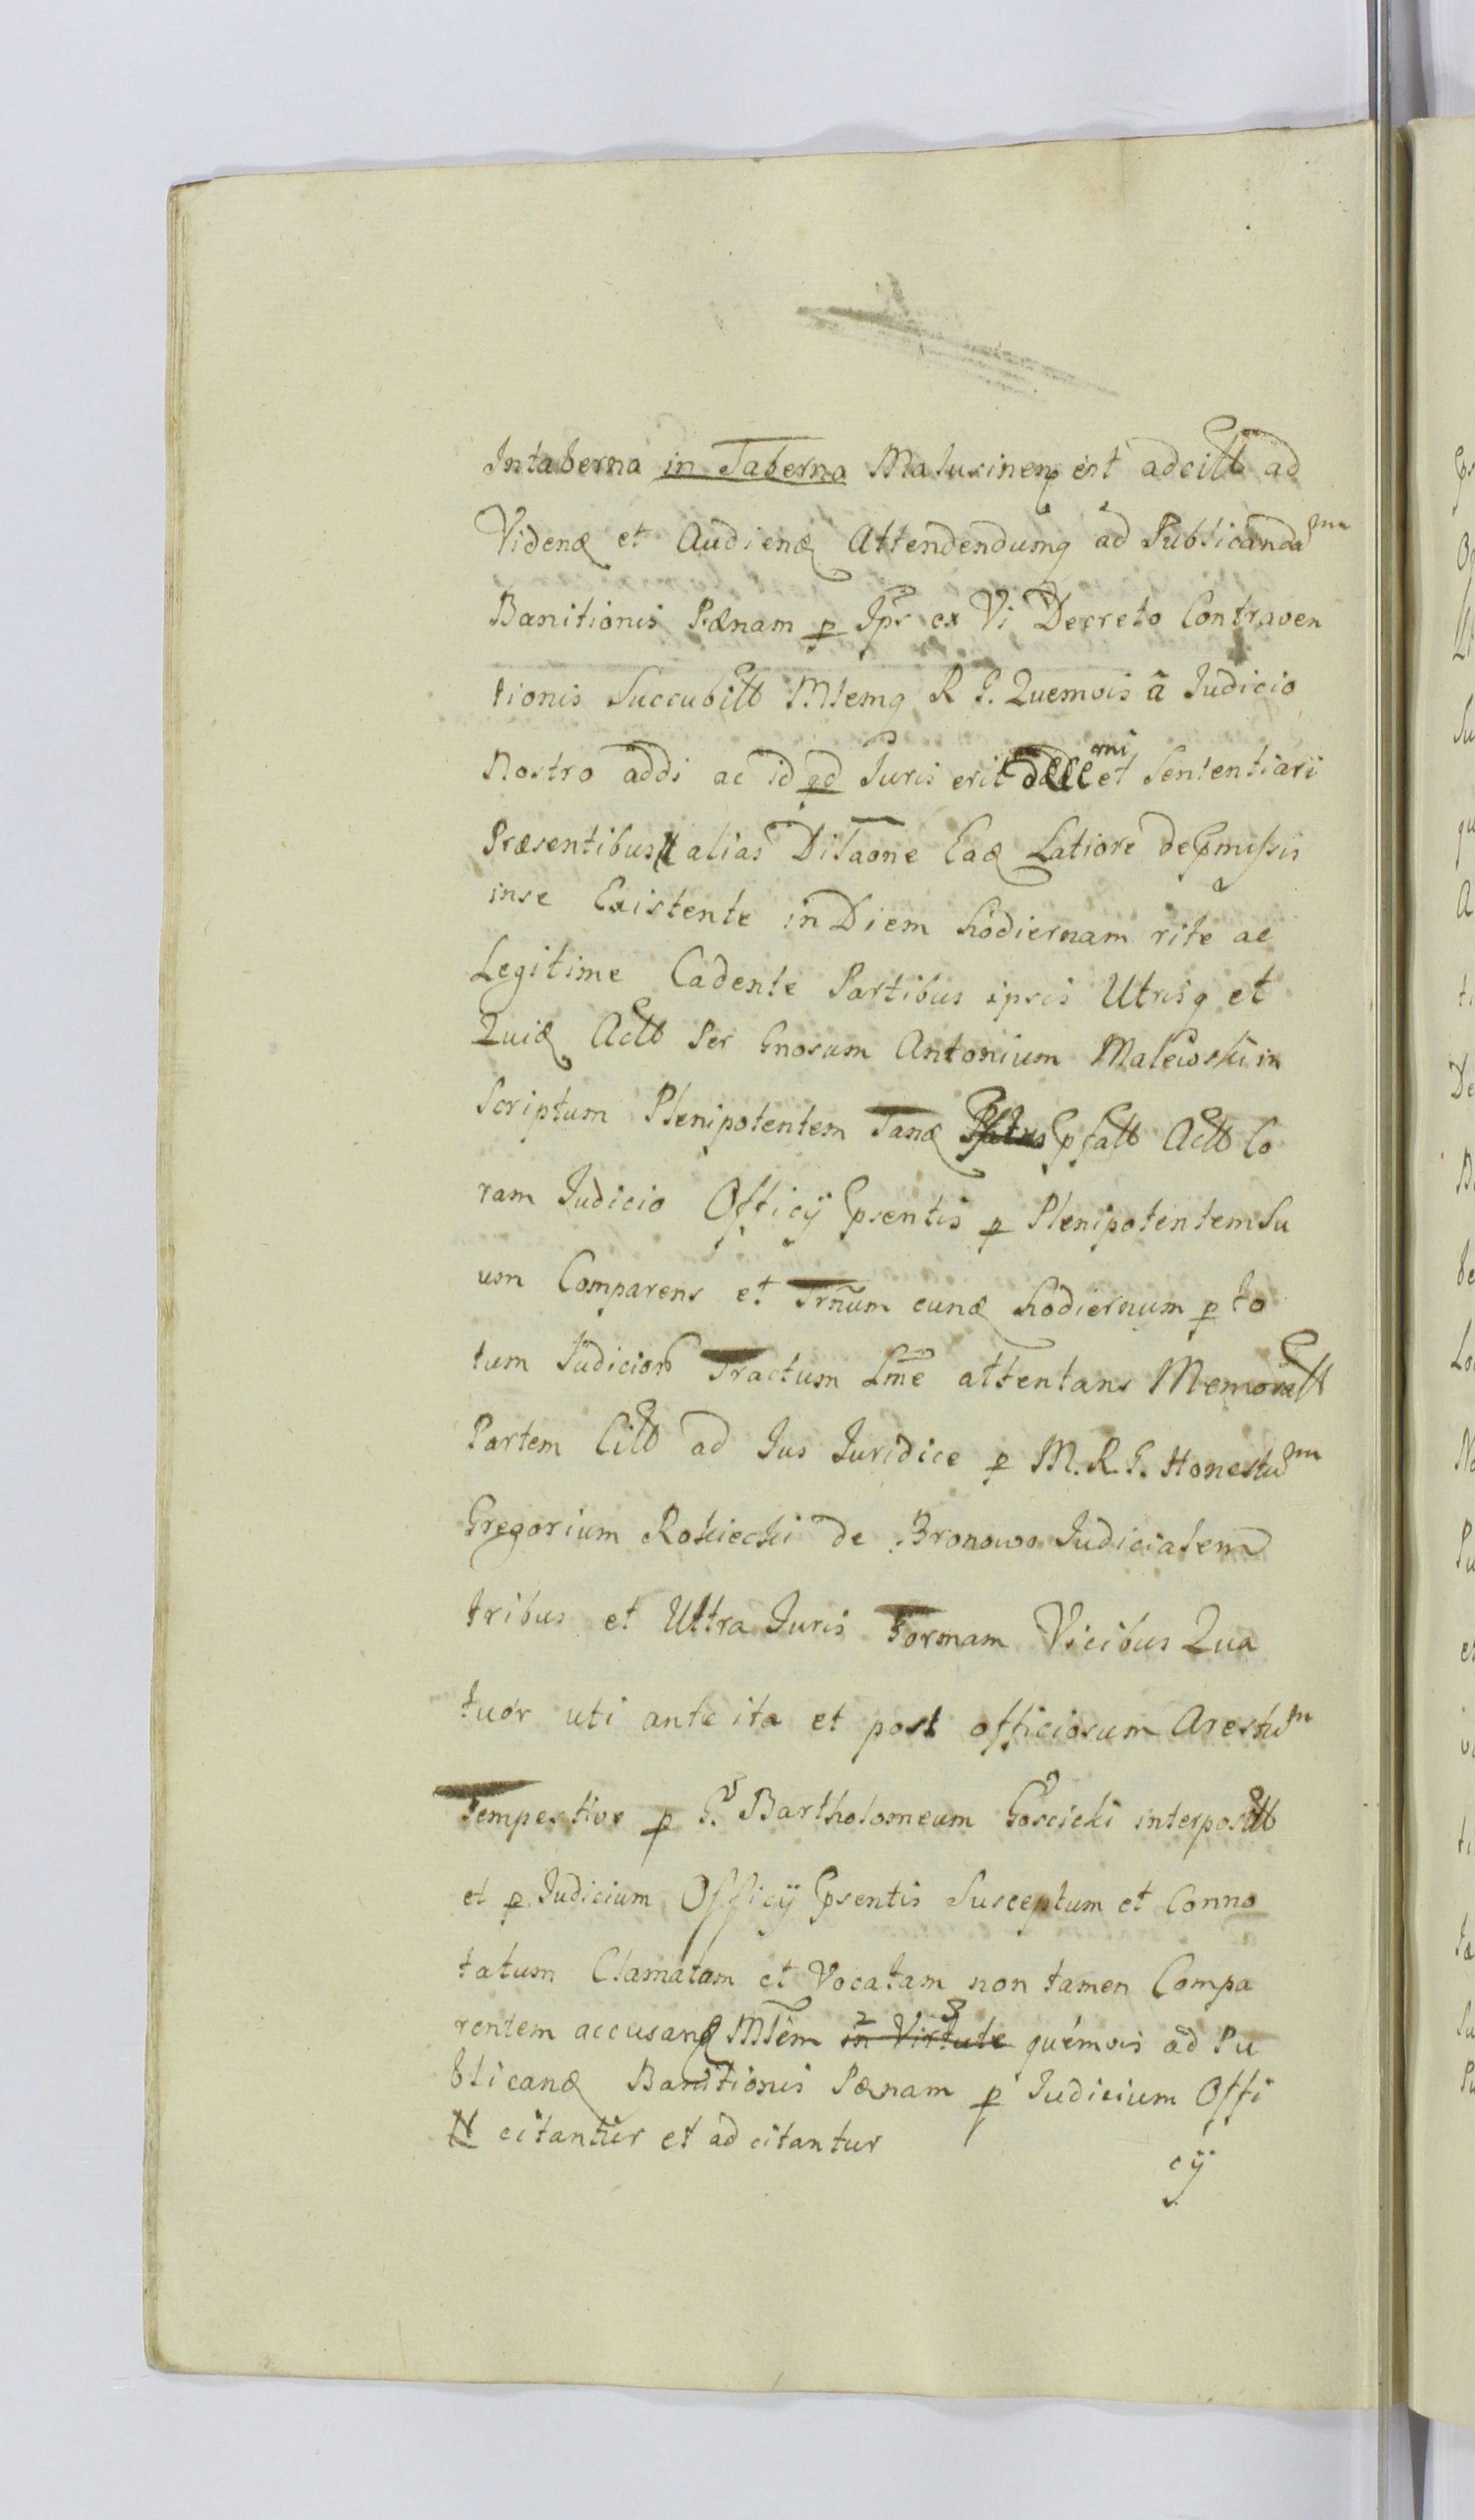 Intaberna in Taberna Malusinen est adcitt ad
Videnæ et Audienæ Attendendumq ad Publicandam
Banitionis Pænam p Ips ex Vi Decreto Contraven
tionis Succubitt Mtemq R G. Quemvis ã Judicio
Nostro addi ac id qd Juris erit et Sententiari
Præsentibus alias Dilaone Eaæ Latiore de Pmissis
inse Existente in Diem hodiernam rite ac
Legitime Cadente Partibus ipsis Utrisq et
Quiæ Actt Per Gnosum Antonium Malewski in
Scriptum Plenipotentem Tanæ psatt Actt Co
ram Judicio Officÿ Psentis p Plenipotentem Su
um Comparens et Trñum eunæ hodiernum p to
tum Judiciorũ Tractum Lme attentans Memoratt
Partem Citt ad Jus Juridice p M. R. G. Honestum
Gregorium Rokiecki de Bronowo Judicialem
tribus et Ultra Juris Formam Vicibus Qua
tuor uti ante ita et post officiosum Arestum
Tempestive p G. Bartholomeum Goscicki interpositt
et p Judicium Officÿ Psentis Susceptum et Conno
tatum Clamatam et Vocatam non tamen Compa
rentem accusanæ Mtem in Virtute quemvis ad Pu
blicanæ Banitionis Pænam p Judicium Offi
citantur et ad citantur
cÿ